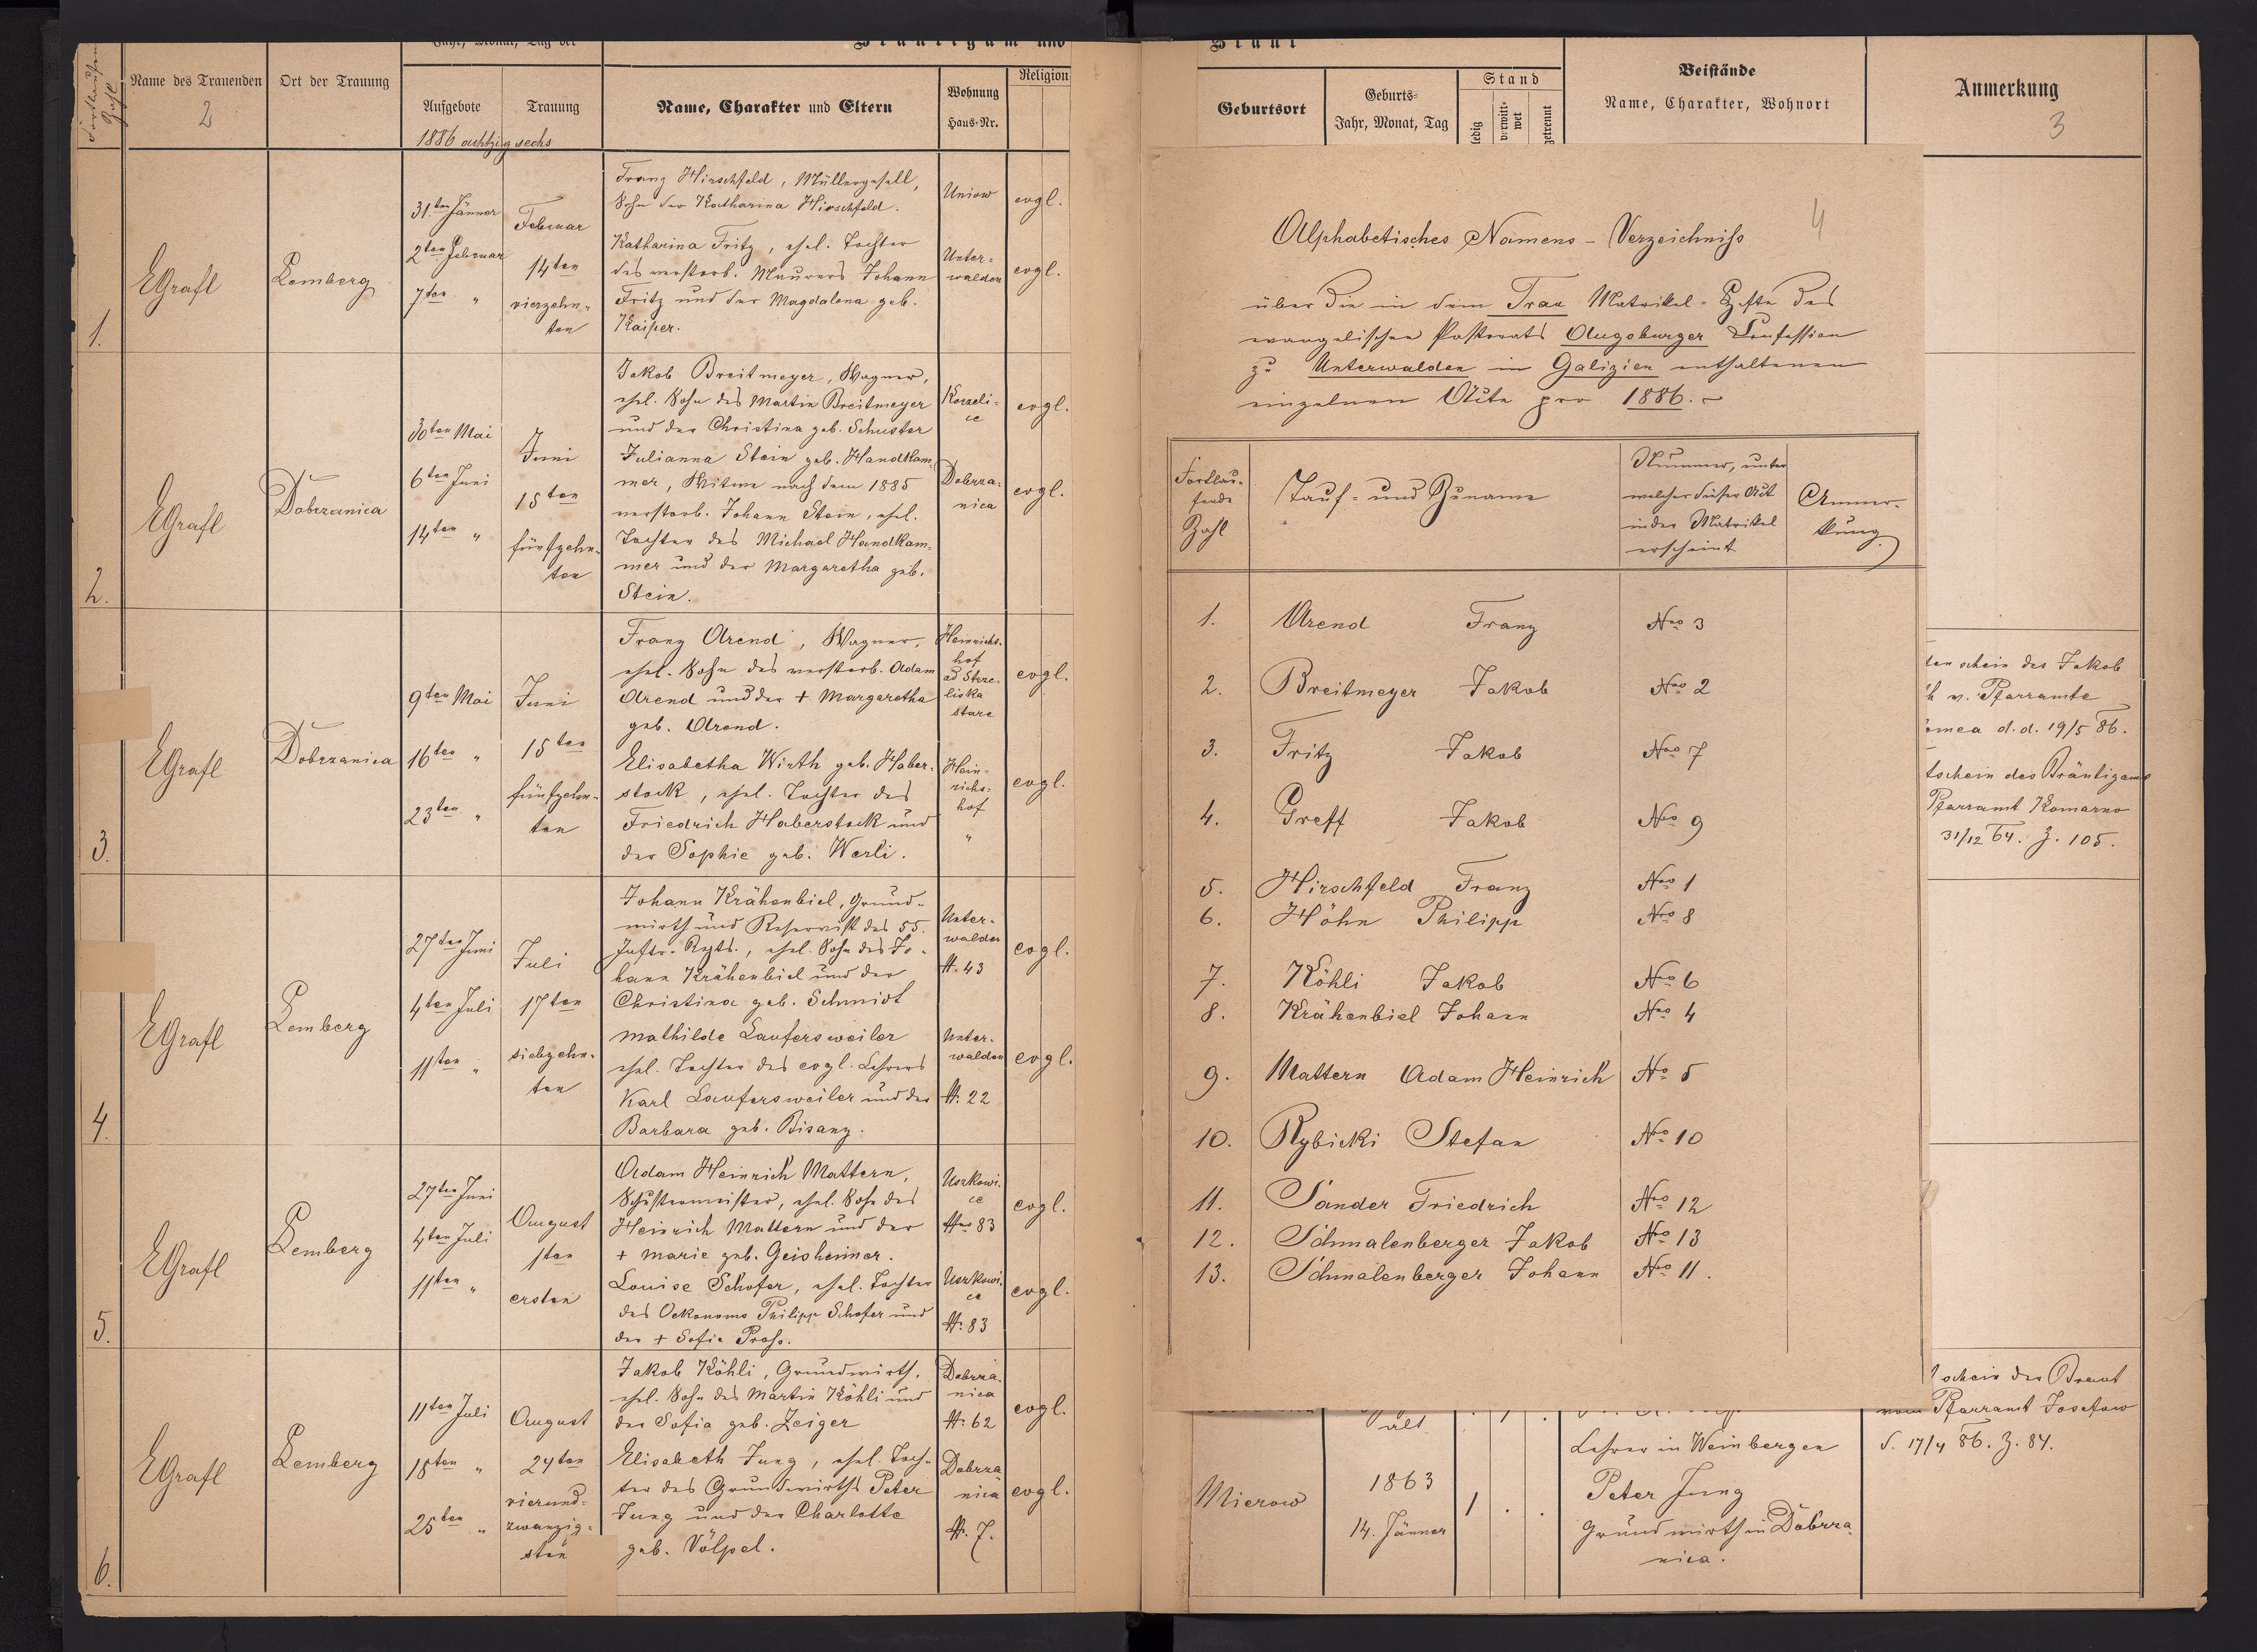 Fortlaufende
Zahl
Name des Trauenden
2
Ort der Trauung
Jahr, Monat, Tag der
Aufgebote
Trauung
1886 achtzig sechs
Bräutigam und
Name, Charakter und Eltern
Wohnung
Haus-Nr.
Religion
1.
EGrafl
Lemberg
31.ten Jänner
2ten Februar
7ten "
Februar
14ten
vierzehn-
ten
Franz Hirschfeld, Müllergesell,
Sohn der Katharina Hirschfeld.
Uniow
evgl.
Katharina Fritz, ehel. Tochter
des verstorb. Maurers Johann
Fritz und der Magdalena geb.
Kaiper.
Unter-
walden
evgl.
2.
EGrafl
Dobrzanica
30ten Mai
6ten Juni
14ten "
Juni
15ten
fünfzehn-
ten
Jakob Breitmeyer, Wagner,
ehel. Sohn des Martin Breitmeyer
und der Christina geb. Schuster
Korzeli-
ce
evgl.
Julianna Stein geb. Handkam-
mer, Witwe nach dem 1885
verstorb. Johann Stein, ehel.
Tochter des Michael Handkam-
mer und der Margaretha geb.
Stein.
Dobrza-
nica
evgl.
3.
EGrafl
Dobrzanica
9ten Mai
16ten "
23ten "
Juni
15ten
fünfzehn-
ten
Franz Arend, Wagner,
ehel. Sohn des verstorb. Adam
Arend und der + Margaretha
geb. Arend.
Heinrichs-
hof
ad Strze-
liska
stare
evgl.
Elisabetha Wirth geb. Haber-
stock, ehel. Tochter des
Friedrich Haberstock und
der Sophie geb. Werli.
Hein-
richs-
hof
"
evgl.
4.
EGrafl
Lemberg
27ten Juni
4ten Juli
11ten "
Juli
17ten
siebzehn-
ten
Johann Krähenbiel, Grund-
wirth und Reservist des 55.
Inftr. Rgts., ehel. Sohn des Jo-
hann Krähenbiel und der
Christina geb. Schmidt
Unter-
walden
N. 43
evgl.
Mathilde Laufersweiler
ehel. Tochter des evgl. Lehrers
Karl Laufersweiler und der
Barbara geb. Bisanz.
Unter-
walden
N. 22
evgl.
5.
EGrafl
Lemberg
27ten Juni
4ten Juli
11ten "
August
1ten
ersten
Adam Heinrich Mattern,
Schustermeister, ehel. Sohn des
Heinrich Mattern und der
+ Marie geb. Geisheimer.
Uszkowi-
ce
Nro 83
evgl.
Louise Schofer, ehel. Tochter
des Oekonoms Philipp Schofer und
der + Sofie Pross.
Uszkowi-
ce
N. 83
evgl.
6.
EGrafl
Lemberg
11ten Juli
18ten "
25ten "
August
24ten
vierund-
zwanzig-
sten
Jakob Köhli, Grundwirth,
ehel. Sohn des Martin Köhli und
der Sofia geb. Zeiger
Dobrza-
nica
N. 62
evgl.
Elisabeth Jung, ehel. Toch-
ter des Grundwirths Peter
Jung und der Charlotte
geb. Völpel.
Dobrza-
nica
N. 7.
evgl.
Braut
Geburtsort
Geburts-
Jahr, Monat, Tag
Stand
ledig
verwit-
wet
getrennt
Beistände
Name, Charakter, Wohnort
Anmerkung
3
4
Alphabetisches Namens-Verzeichniss
über die in dem Trau Matrikel-Hefte des
evangelischen Pastorats Augsburger Confession
zu Unterwalden in Galizien enthaltenen
einzelnen Akte pro 1886.
Fortlau-
fende
Zahl
Tauf- und Zuname
Nummer, unter
welcher dieser Act
in der Matrikel
erscheint
Anmer-
kung.
1. Arend Franz Nro 3
2. Breitmeyer Jakob Nro 2
3. Fritz Jakob Nro 7
4. Greff Jakob Nro 9
5. Hirschfeld Franz Nro 1
6. Höhn Philipp Nro 8
7. Köhli Jakob Nro 6
8. Krähenbiel Johann Nro 4
9. Mattern Adam Heinrich No 5
10. Rybicki Stefan Nro 10
11. Sander Friedrich Nro 12
12. Schmalenberger Jakob Nro 13
13. Schmalenberger Johann Nro 11.
tenschein des Jakob
h v. Pfarramte
omea d.d. 19/5 86.
tschein des Bräutigams
Pfarramt Komarno
31/12 64. Z. 105.
schein der Braut
vom Pfarramt Josefow
d. 17/4 86. Z. 84.
alt
Lehrer in Weinbergen
Mierow
1863
14. Jänner
1 . .
Peter Jung
Grundwirth in Dobrza-
nica.